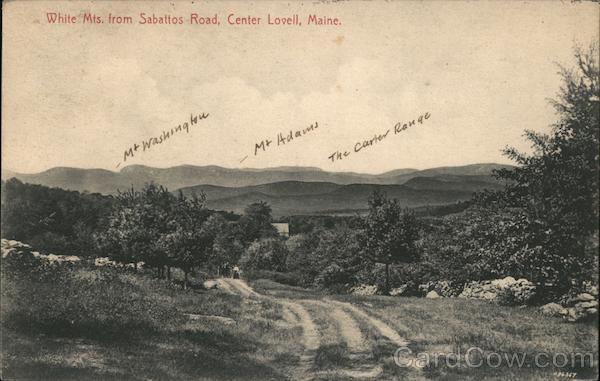 White Mts. from Sabattos Road, Center Lovell, Maine.
Mt Washington
Mt Adams
The Carter Range
CardCow.com